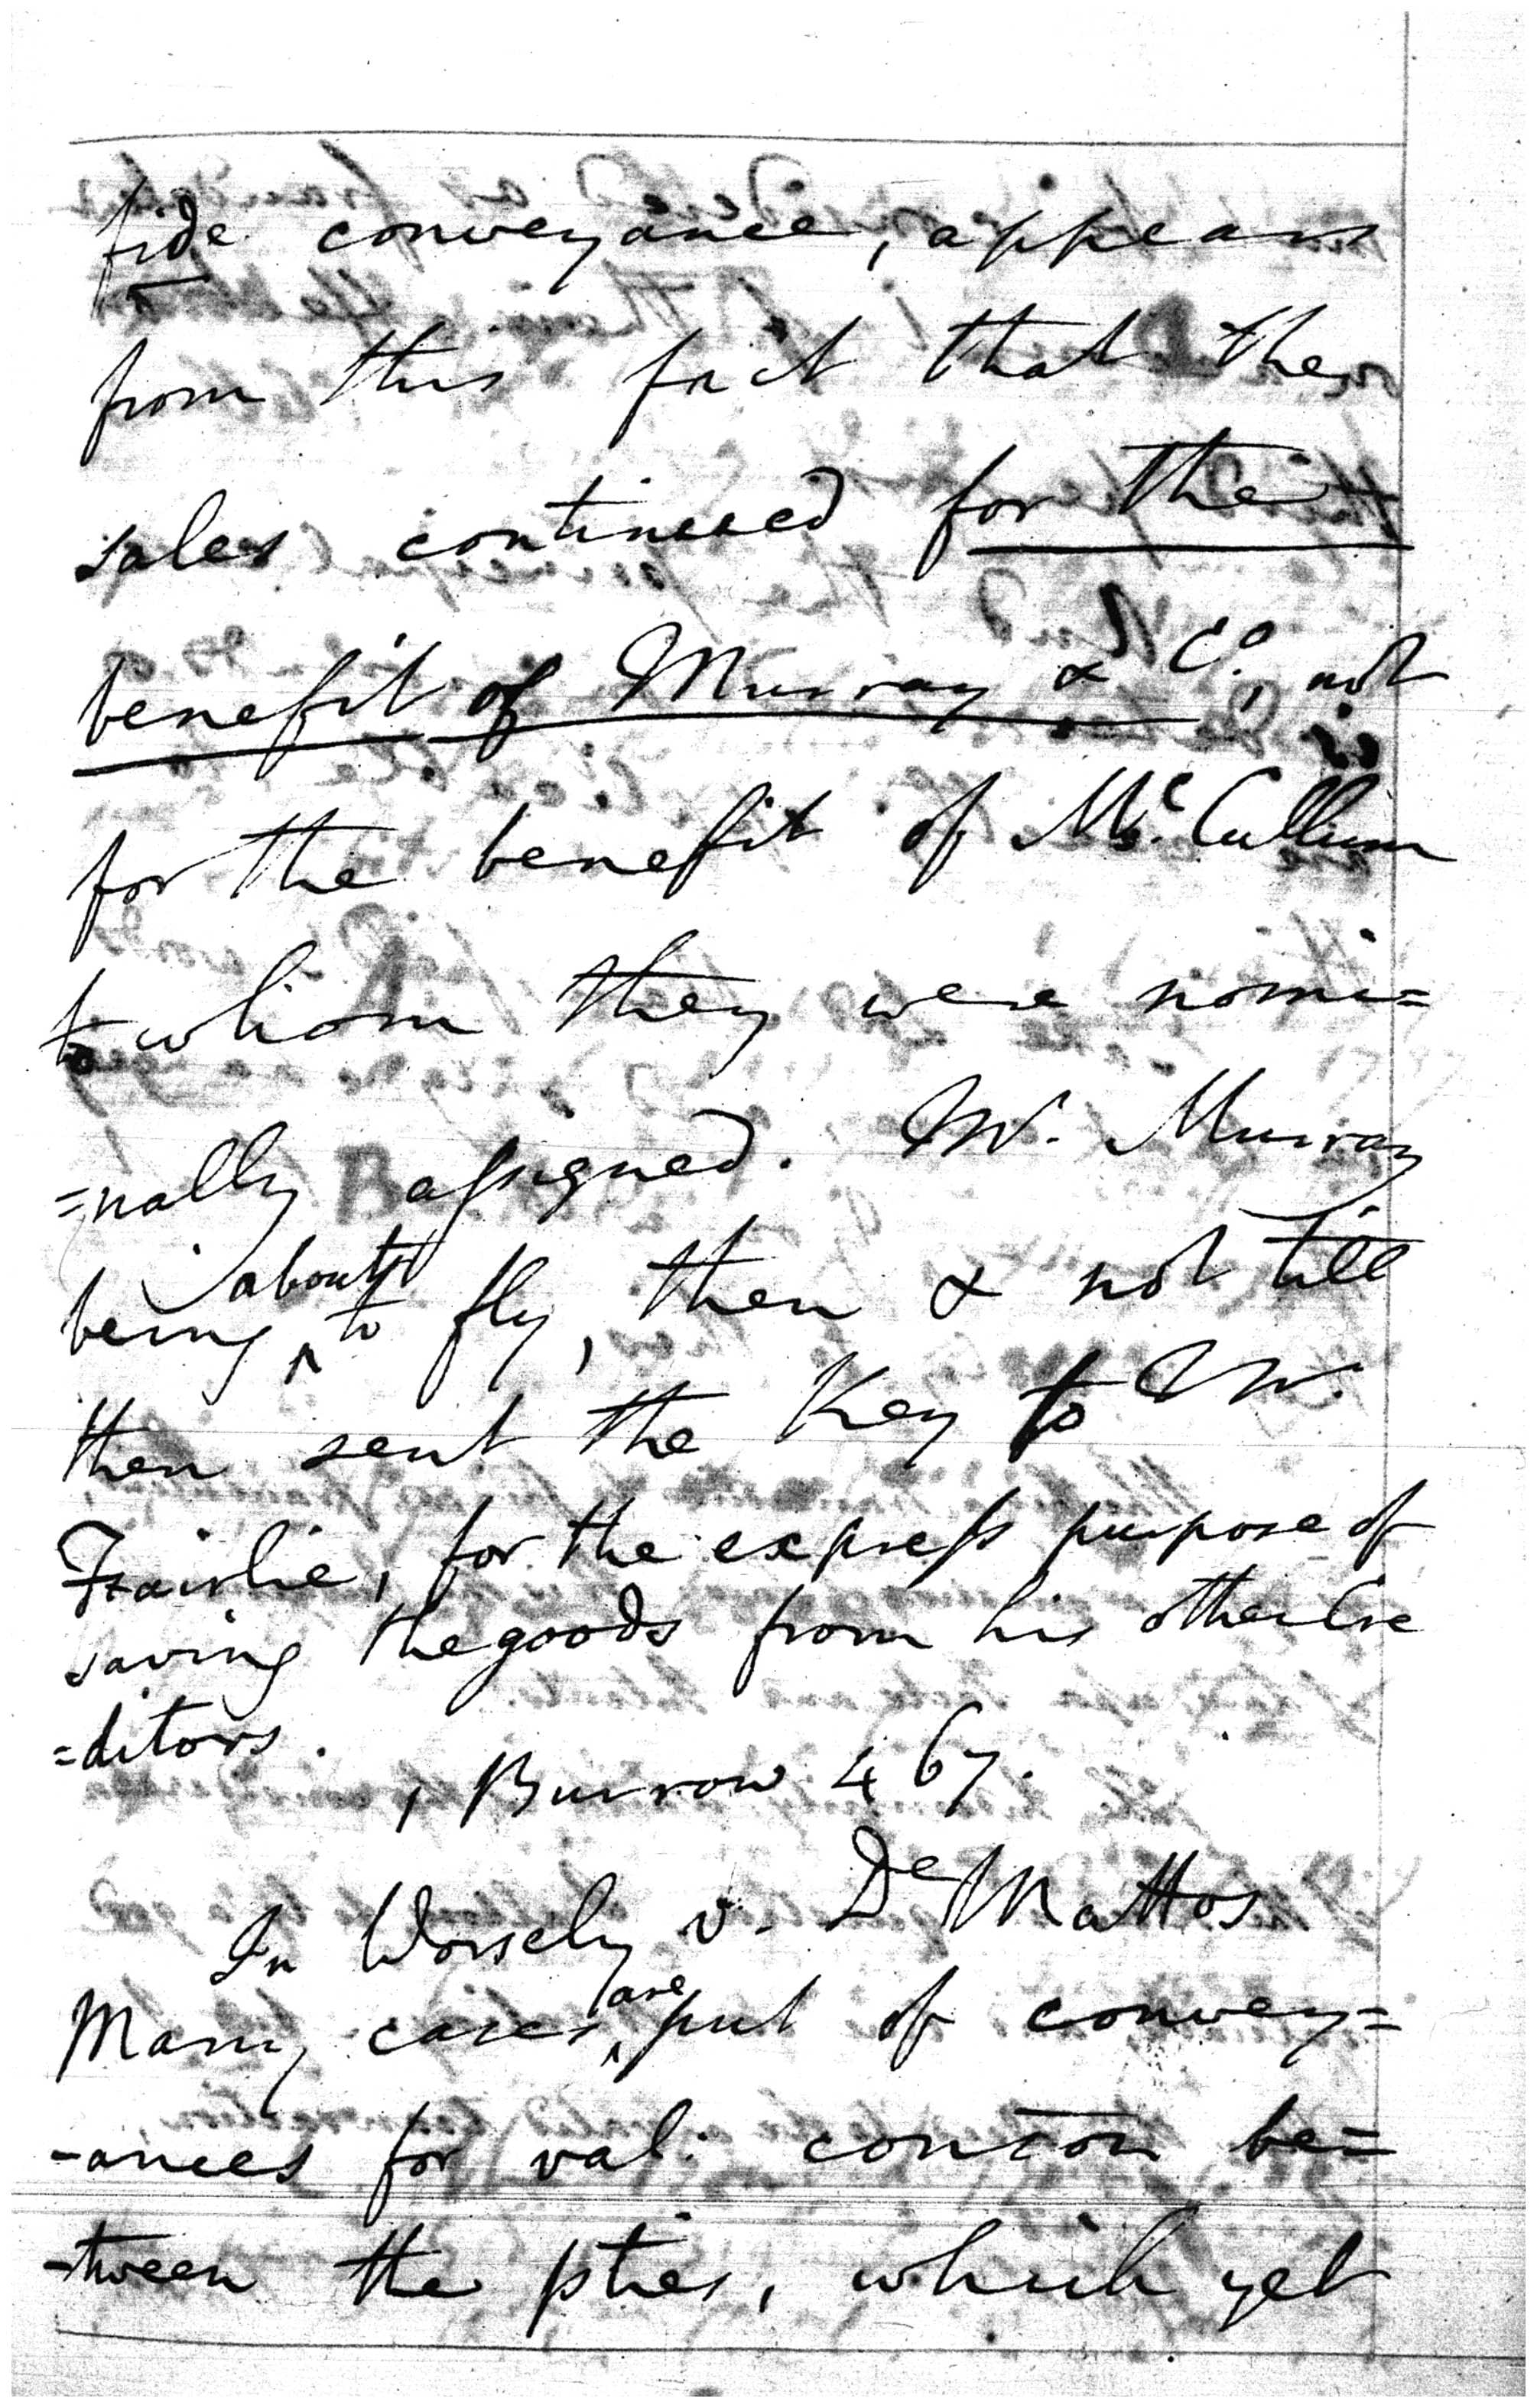 fide conveyance, appears
from this fact that the
sales continued for the
benefit of Murray & Co., not
for the benefit of McCullum
to whom they were nomi=
=nally assigned. Mr. Murray
being about to fly, then & not till
then sent the Key to Mr.
Fairlie, for the express purpose of
saving the goods from his other Cre
=ditors.
1 Burrow 467.
In Worsely v. De Mattos
Many cases are put of convey=
-ances for val: concon be=
-tween the pties, which yet